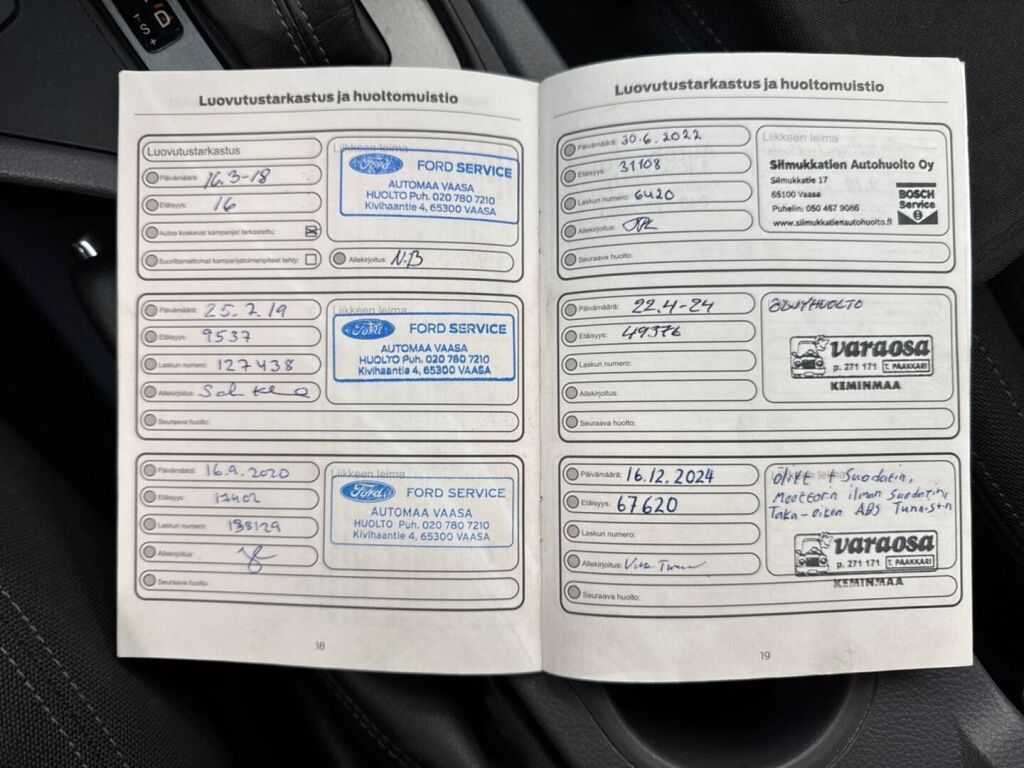 D
S
+
Luovutustarkastus ja huoltomuistio
Luovutustarkastus
Liikkeen leima
Päivämäärä: 16.3-18
Etäisyys: 16
Autoa koskevat kampanjat tarkastettu:
Suorittamattomat kampanjatoimenpiteet tehty:
Allekirjoitus: N.B
Ford FORD SERVICE
AUTOMAA VAASA
HUOLTO Puh. 020 780 7210
Kivihaantie 4, 65300 VAASA
Päivämäärä: 25.7.19
Liikkeen leima
Etäisyys: 9537
Laskun numero: 127438
Allekirjoitus:
Seuraava huolto:
Ford FORD SERVICE
AUTOMAA VAASA
HUOLTO Puh. 020 780 7210
Kivihaantie 4, 65300 VAASA
Päivämäärä: 16.9.2020
Liikkeen leima
Etäisyys: 17402
Laskun numero: 138129
Allekirjoitus:
Seuraava huolto:
Ford FORD SERVICE
AUTOMAA VAASA
HUOLTO Puh. 020 780 7210
Kivihaantie 4, 65300 VAASA
18
Luovutustarkastus ja huoltomuistio
Päivämäärä: 30.6.2022
Liikkeen leima
Etäisyys: 31108
Laskun numero: 6420
Allekirjoitus:
Seuraava huolto:
Silmukkatien Autohuolto Oy
Silmukkatie 17
65100 Vaasa
Puhelin: 050 467 9086
www.silmukkatienautohuolto.fi
BOSCH
Service
Päivämäärä: 22.4-24
Etäisyys: 49376
Laskun numero:
Allekirjoitus:
Seuraava huolto:
ÖLJYHUOLTO
varaosa
p. 271 171 T. PAAKKARI
KEMINMAA
Päivämäärä: 16.12.2024
Etäisyys: 67620
Laskun numero:
Allekirjoitus:
Seuraava huolto:
öljyt + Suodatin,
Moottorin ilman Suodatin,
Taka-oikea ABS Tunnistin
varaosa
p. 271 171 T. PAAKKARI
KEMINMAA
19